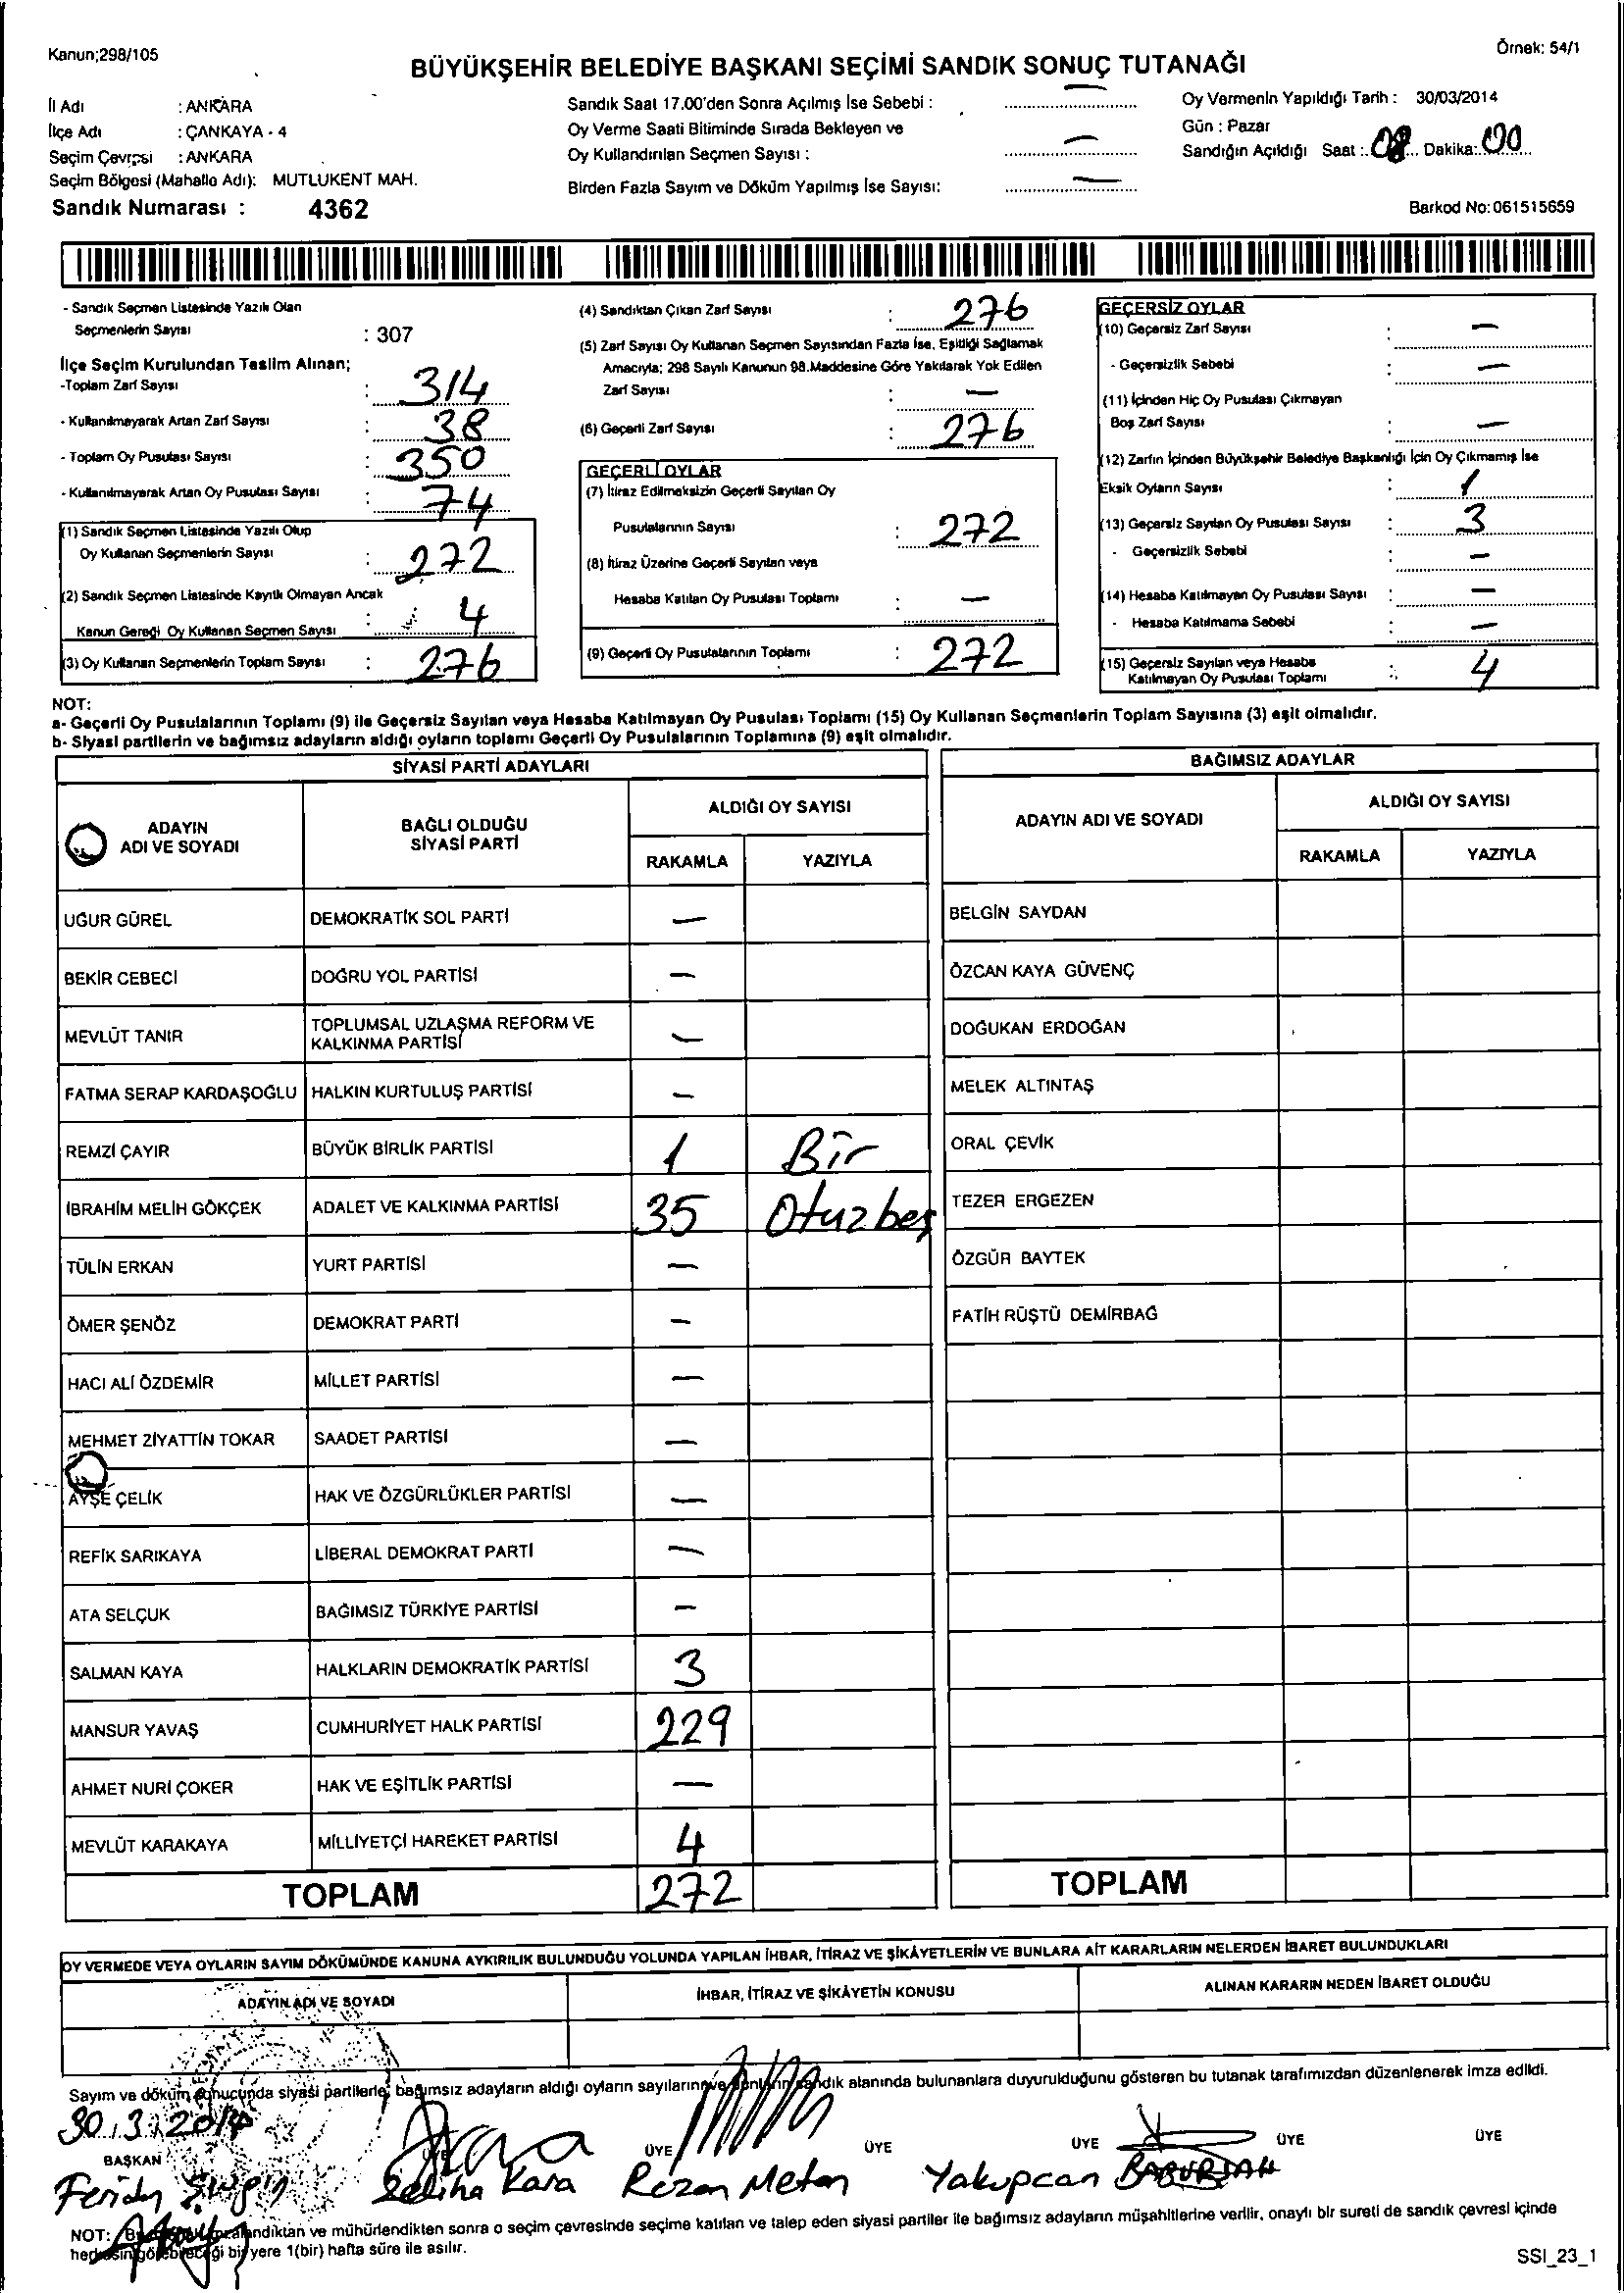 Kanun;298/105
Örnek: 54/1
BÜYÜKŞEHİR BELEDİYE BAŞKANI SEÇİMİ SANDIK SONUÇ TUTANAĞI
İl Adı : ANKARA
İlçe Adı : ÇANKAYA - 4
Seçim Çevresi : ANKARA
Seçim Bölgesi (Mahalle Adı): MUTLUKENT MAH.
Sandık Numarası : 4362
Sandık Saat 17.00'den Sonra Açılmış İse Sebebi : —
Oy Verme Saati Bitiminde Sırada Bekleyen ve
Oy Kullandırılan Seçmen Sayısı : —
Birden Fazla Sayım ve Döküm Yapılmış İse Sayısı: —
Oy Vermenin Yapıldığı Tarih : 30/03/2014
Gün : Pazar
Sandığın Açıldığı Saat :.08... Dakika:.00
Barkod No:061515659
- Sandık Seçmen Listesinde Yazılı Olan
Seçmenlerin Sayısı : 307
İlçe Seçim Kurulundan Teslim Alınan;
-Toplam Zarf Sayısı : 314
- Kullanılmayarak Artan Zarf Sayısı : 38
- Toplam Oy Pusulası Sayısı : 350
- Kullanılmayarak Artan Oy Pusulası Sayısı : 74
(1) Sandık Seçmen Listesinde Yazılı Olup
Oy Kullanan Seçmenlerin Sayısı : 272
(2) Sandık Seçmen Listesinde Kayıtlı Olmayan Ancak
Kanun Gereği Oy Kullanan Seçmen Sayısı : 4
(3) Oy Kullanan Seçmenlerin Toplam Sayısı : 276
(4) Sandıktan Çıkan Zarf Sayısı : 276
(5) Zarf Sayısı Oy Kullanan Seçmen Sayısından Fazla İse, Eşitliği Sağlamak
Amacıyla; 298 Sayılı Kanunun 98.Maddesine Göre Yakılarak Yok Edilen
Zarf Sayısı : —
(6) Geçerli Zarf Sayısı : 276
GEÇERLİ OYLAR
(7) İtiraz Edilmeksizin Geçerli Sayılan Oy
Pusulalarının Sayısı : 272
(8) İtiraz Üzerine Geçerli Sayılan veya
Hesaba Katılan Oy Pusulası Toplamı : —
(9) Geçerli Oy Pusulalarının Toplamı : 272
GEÇERSİZ OYLAR
(10) Geçersiz Zarf Sayısı : —
- Geçersizlik Sebebi : —
(11) İçinden Hiç Oy Pusulası Çıkmayan
Boş Zarf Sayısı : —
(12) Zarfın İçinden Büyükşehir Belediye Başkanlığı İçin Oy Çıkmamış İse
Eksik Oyların Sayısı : 1
(13) Geçersiz Sayılan Oy Pusulası Sayısı : 3
- Geçersizlik Sebebi : —
(14) Hesaba Katılmayan Oy Pusulası Sayısı : —
- Hesaba Katılmama Sebebi : —
(15) Geçersiz Sayılan veya Hesaba
Katılmayan Oy Pusulası Toplamı : 4
NOT:
a- Geçerli Oy Pusulalarının Toplamı (9) ile Geçersiz Sayılan veya Hesaba Katılmayan Oy Pusulası Toplamı (15) Oy Kullanan Seçmenlerin Toplam Sayısına (3) eşit olmalıdır.
b- Siyasi partilerin ve bağımsız adayların aldığı oyların toplamı Geçerli Oy Pusulalarının Toplamına (9) eşit olmalıdır.
SİYASİ PARTİ ADAYLARI
ADAYIN
ADI VE SOYADI
BAĞLI OLDUĞU
SİYASİ PARTİ
ALDIĞI OY SAYISI
RAKAMLA YAZIYLA
UĞUR GÜREL DEMOKRATİK SOL PARTİ —
BEKİR CEBECİ DOĞRU YOL PARTİSİ —
MEVLÜT TANIR TOPLUMSAL UZLAŞMA REFORM VE
KALKINMA PARTİSİ —
FATMA SERAP KARDAŞOĞLU HALKIN KURTULUŞ PARTİSİ —
REMZİ ÇAYIR BÜYÜK BİRLİK PARTİSİ 1 Bir
İBRAHİM MELİH GÖKÇEK ADALET VE KALKINMA PARTİSİ 35 Otuzbeş
TÜLİN ERKAN YURT PARTİSİ —
ÖMER ŞENÖZ DEMOKRAT PARTİ —
HACI ALİ ÖZDEMİR MİLLET PARTİSİ —
MEHMET ZİYATTİN TOKAR SAADET PARTİSİ —
AYŞE ÇELİK HAK VE ÖZGÜRLÜKLER PARTİSİ —
REFİK SARIKAYA LİBERAL DEMOKRAT PARTİ —
ATA SELÇUK BAĞIMSIZ TÜRKİYE PARTİSİ —
SALMAN KAYA HALKLARIN DEMOKRATİK PARTİSİ 3
MANSUR YAVAŞ CUMHURİYET HALK PARTİSİ 229
AHMET NURİ ÇOKER HAK VE EŞİTLİK PARTİSİ —
MEVLÜT KARAKAYA MİLLİYETÇİ HAREKET PARTİSİ 4
TOPLAM 272
BAĞIMSIZ ADAYLAR
ADAYIN ADI VE SOYADI
ALDIĞI OY SAYISI
RAKAMLA YAZIYLA
BELGİN SAYDAN
ÖZCAN KAYA GÜVENÇ
DOĞUKAN ERDOĞAN
MELEK ALTINTAŞ
ORAL ÇEVİK
TEZER ERGEZEN
ÖZGÜR BAYTEK
FATİH RÜŞTÜ DEMİRBAĞ
TOPLAM
OY VERMEDE VEYA OYLARIN SAYIM DÖKÜMÜNDE KANUNA AYKIRILIK BULUNDUĞU YOLUNDA YAPILAN İHBAR, İTİRAZ VE ŞİKÂYETLERİN VE BUNLARA AİT KARARLARIN NELERDEN İBARET BULUNDUKLARI
ADAYIN ADI VE SOYADI
İHBAR, İTİRAZ VE ŞİKÂYETİN KONUSU
ALINAN KARARIN NEDEN İBARET OLDUĞU
Sayım ve döküm sonucunda siyasi partilerle, bağımsız adayların aldığı oyların sayılarını ve bunların sandık alanında bulunanlara duyurulduğunu gösteren bu tutanak tarafımızdan düzenlenerek imza edildi.
30.3.2014
BAŞKAN ÜYE ÜYE ÜYE ÜYE ÜYE ÜYE
Saliha Kara Rezan Metan Yakupcan
NOT: Bu ve mühürlendikten sonra o seçim çevresinde seçime katılan ve talep eden siyasi partiler ile bağımsız adayların müşahitlerine verilir, onaylı bir sureti de sandık çevresi içinde
herkesin görebileceği bir yere 1(bir) hafta süre ile asılır.
SSI_23_1